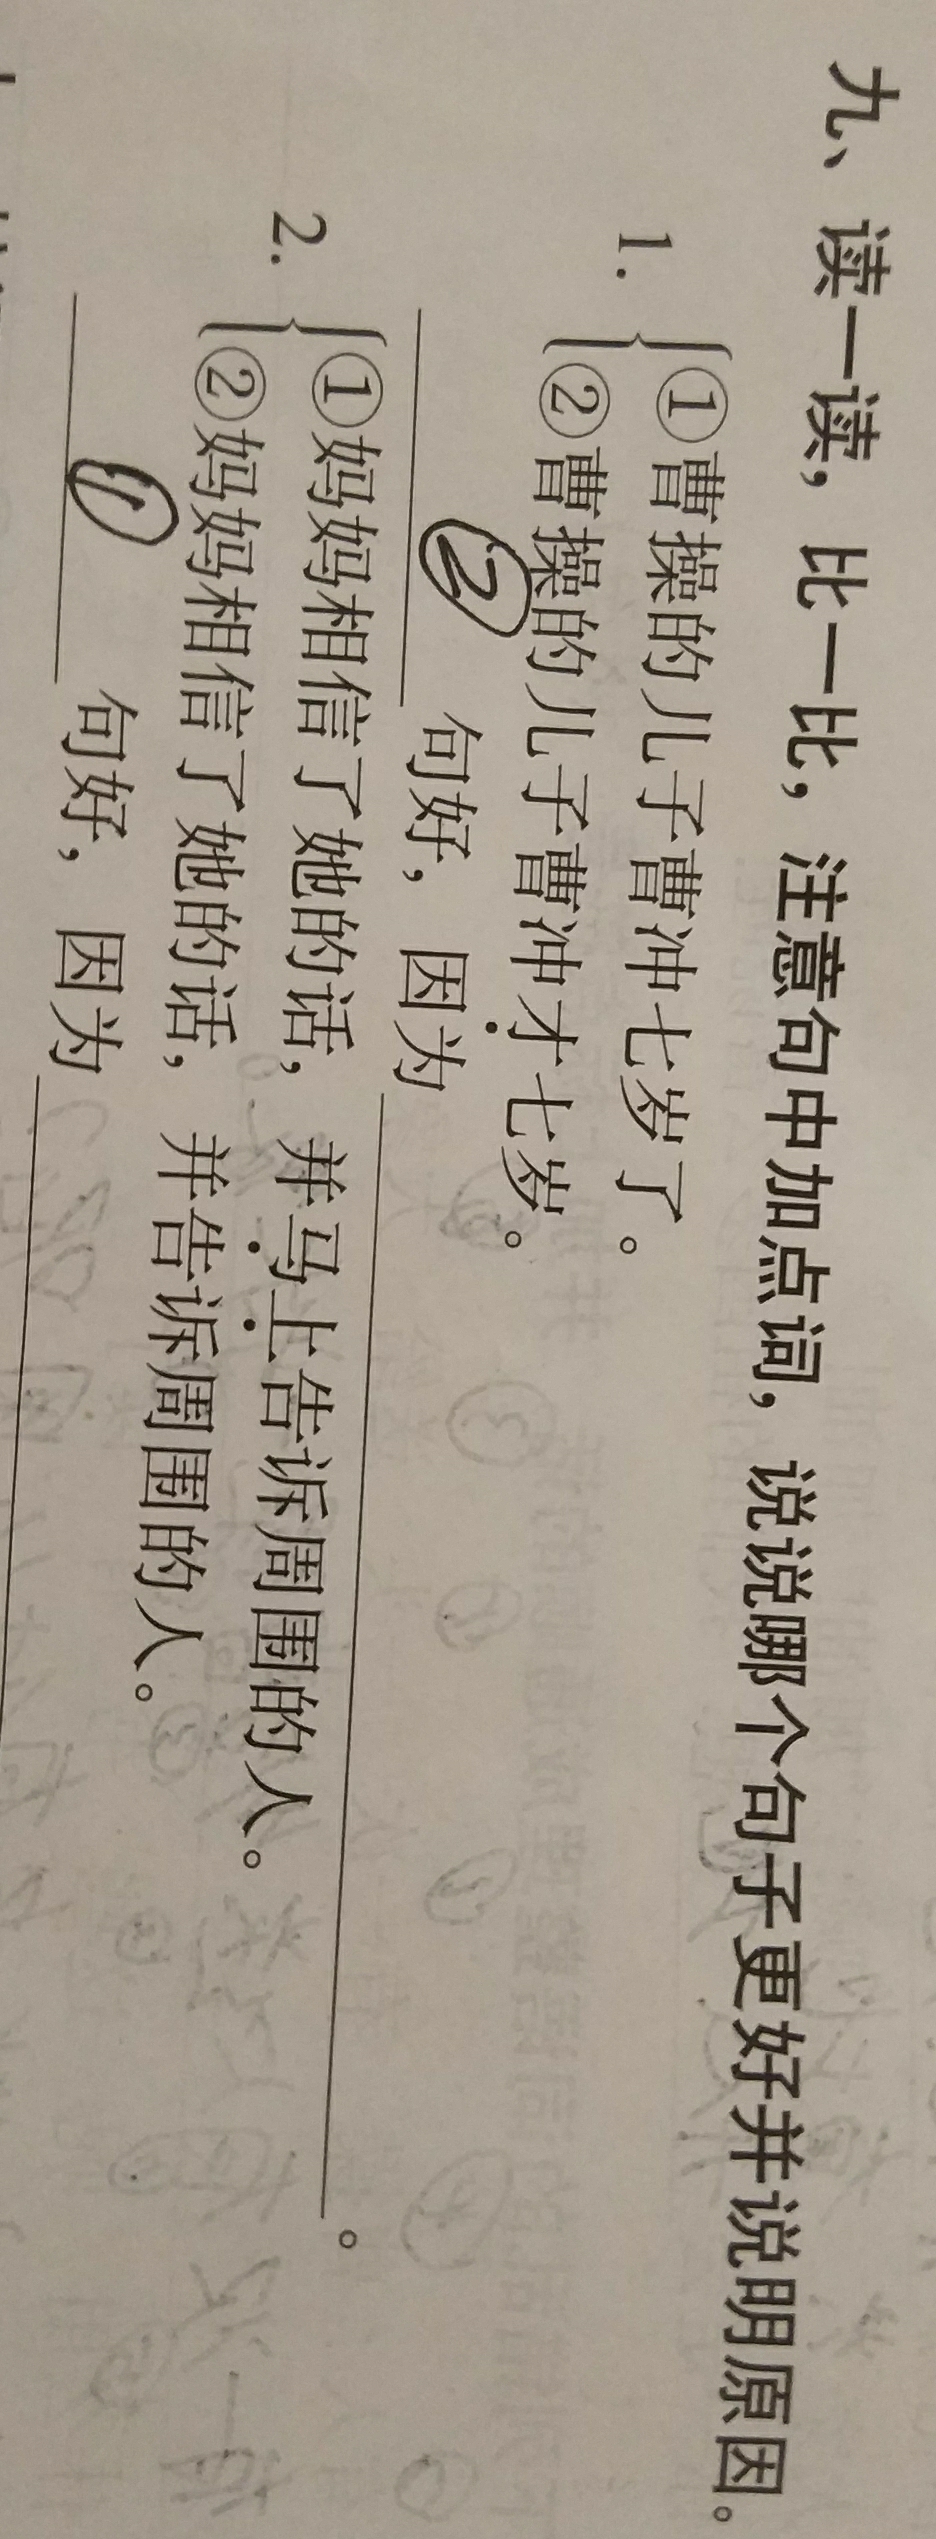 九、读一读，比一比，注意句中加点词，说说哪个句子更好并说明原因。
1. ①曹操的儿子曹冲七岁了。
②曹操的儿子曹冲才七岁。
② 句好，因为。
2. ①妈妈相信了她的话，并马上告诉周围的人。
②妈妈相信了她的话，并告诉周围的人。
① 句好，因为